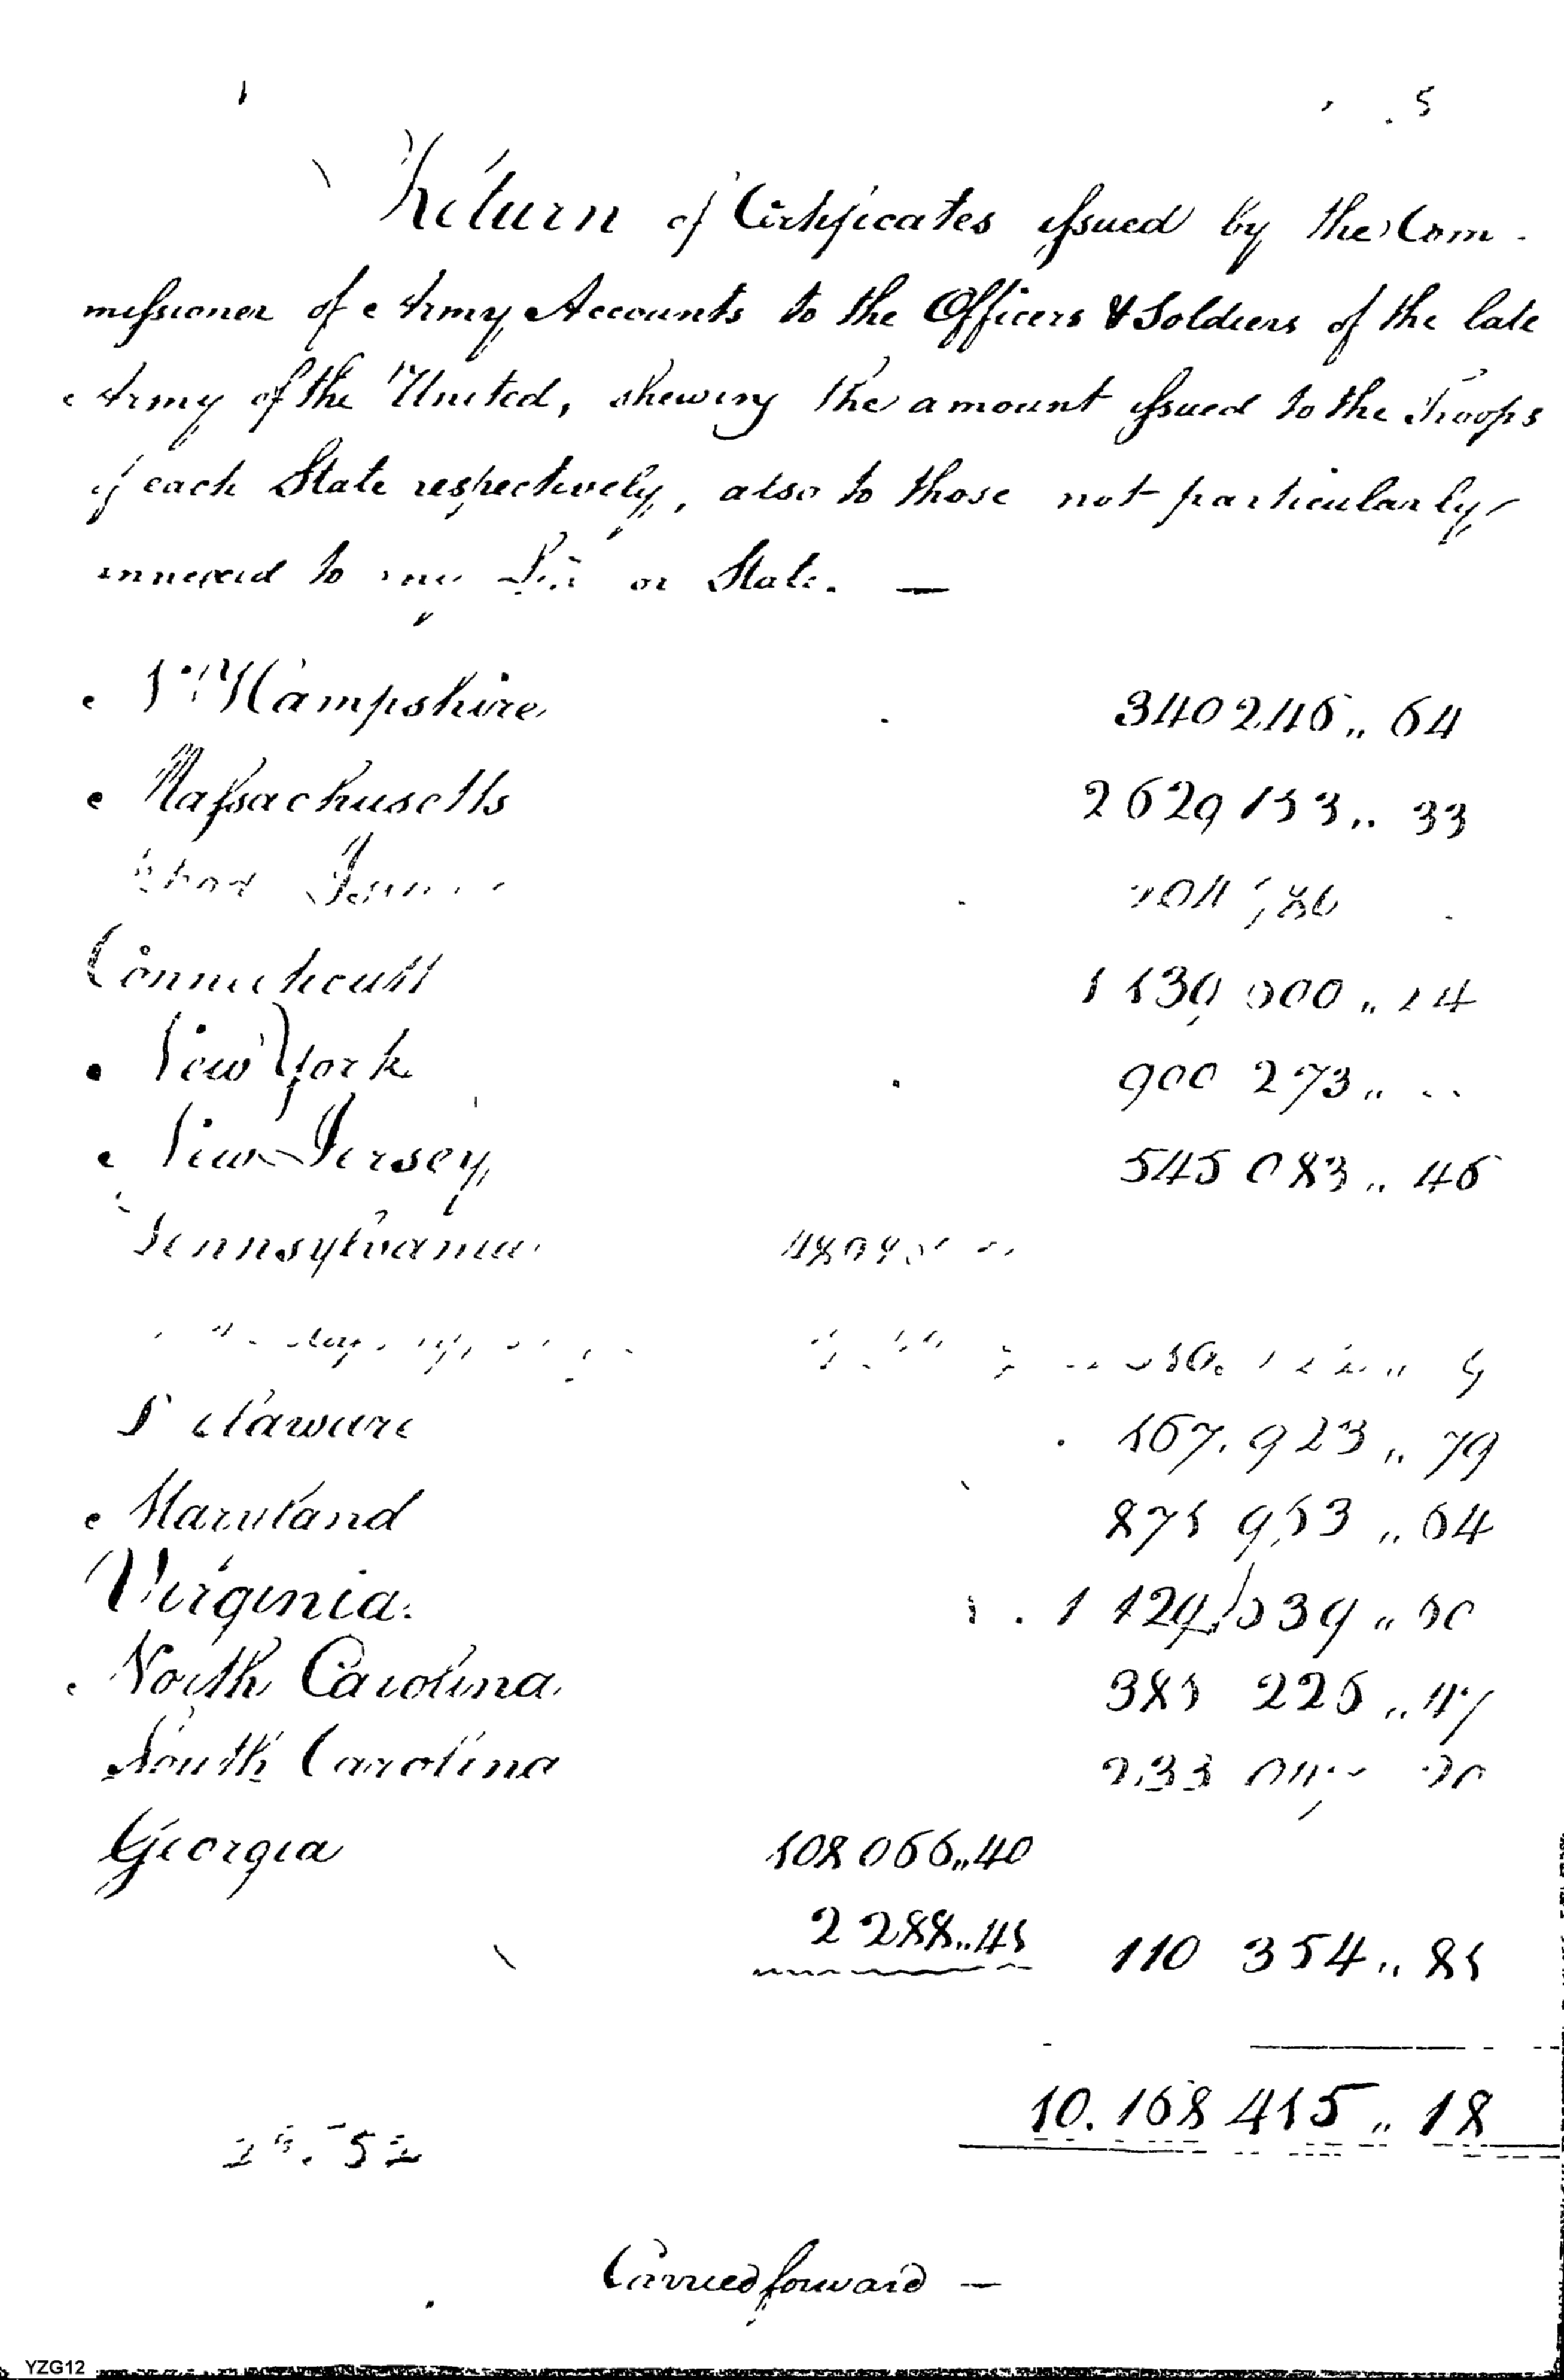 Return of Certificates issued by the Com-
missioner of Army Accounts to the Officers & Soldiers of the late
Army of the United, shewing the amount issued to the Troops
of each State respectively, also to those not particularly
annexed to any Line or State. —
N. Hampshire 340 246 ,, 64
Massachusetts 2 629 153 ,, 33
Connecticutt
New York 900 273 ,, ..
New Jersey 545 083 ,, 46
Pennsylvania
Delaware 167. 923 ,, 79
Maryland 871 953 ,, 64
Virginia.
North Carolina 381 226 ,, 47
South Carolina 233
Georgia 108 066 ,, 40
2 288 ,, 41 110 354 ,, 81
10. 168 415 ,, 18
Carried forward —
YZG12